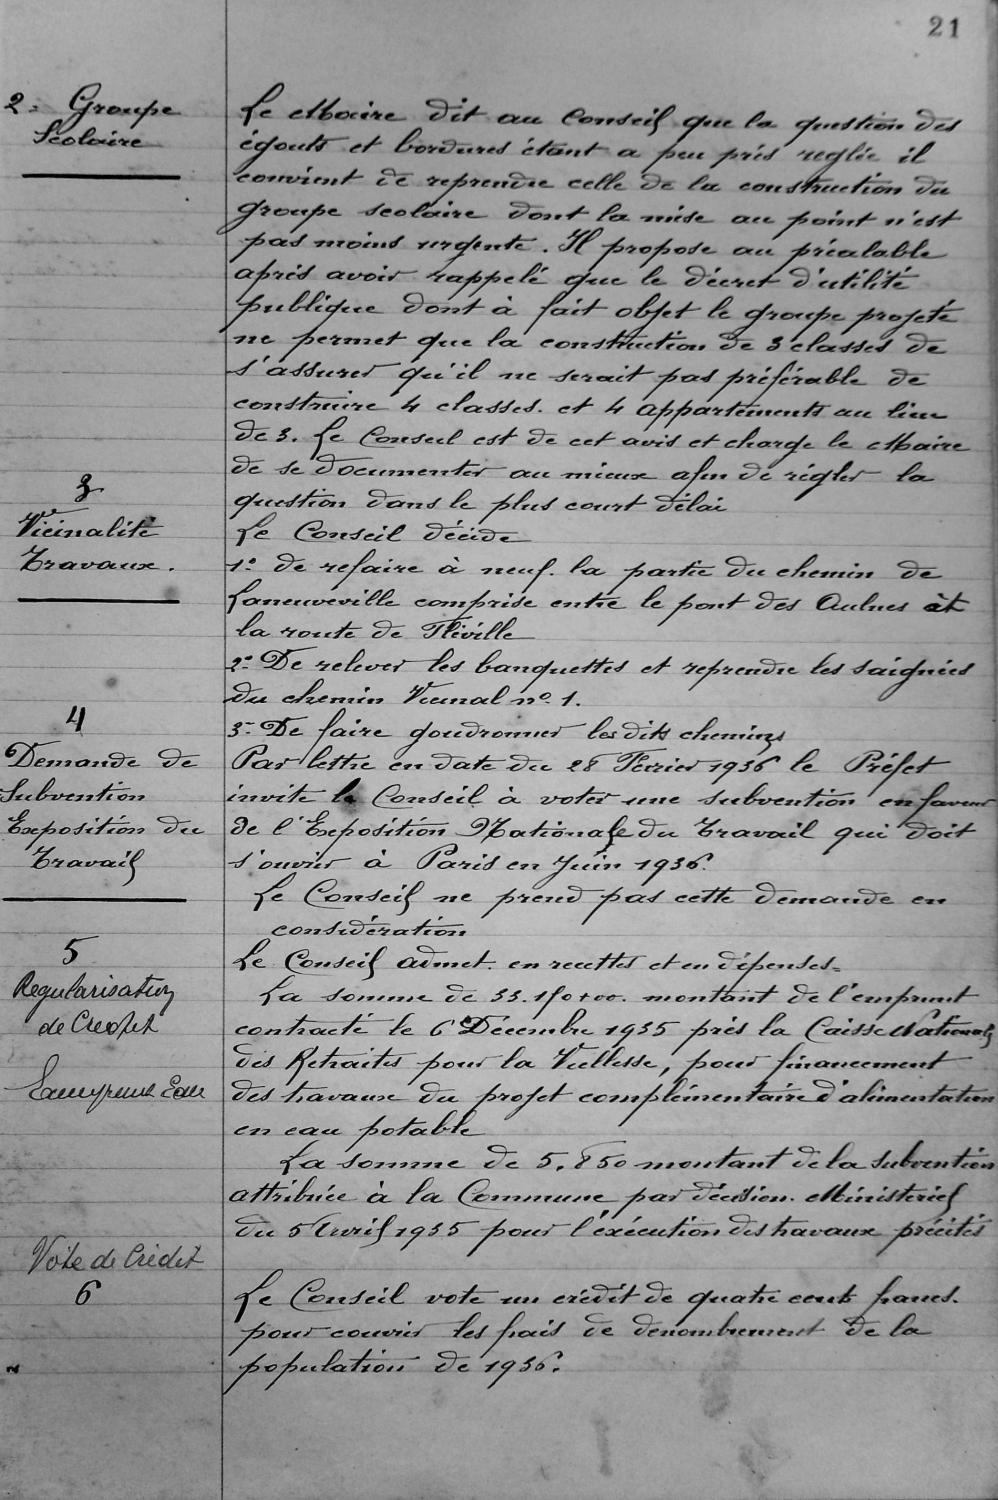 21
2= Groupe
Scolaire
Le Maire dit au Conseil que la question des
égouts et bordures étant a peu près reglée il
convient de reprendre celle de la construction du
groupe scolaire dont la mise au point n'est
pas moins urgente. Il propose au préalable
après avoir rappelé que le décret d'utilité
publique dont à fait objet le groupe projeté
ne permet que la construction de 3 classes de
s'assurer qu'il ne serait pas préférable de
construire 4 classes. et 4 appartements au lieu
de 3. Le Conseil est de cet avis et charge le Maire
de se documenter au mieux afin de régler la
question dans le plus court délai
3
Vicinalité
Travaux.
Le Conseil décide
1º de refaire à neuf. la partie du chemin de
Laneuveville comprise entre le pont des Aulnes et
la route de Fléville
2º De relever les banquettes et reprendre les saignées
du chemin Vicinal nº 1.
3º De faire goudronner les dits chemins
4
Demande de
Subvention
Exposition du
Travail
Par lettre en date du 28 Février 1936 le Préfet
invite le Conseil à voter une subvention en faveur
de l'Exposition Nationale du Travail qui doit
s'ouvrir à Paris en Juin 1936.
Le Conseil ne prend pas cette demande en
considération
5
Regularisation
de Credit
Eau
Le Conseil admet. en recettes et en dépenses=
La somme de montant de l'emprunt
contracté le 6 Décembre 1935 près la Caisse Nationale
des Retraites pour la Viellesse, pour financement
des travaux du projet complémentaire d'alimentation
en eau potable
La somme de 5.850 montant de la subvention
attribuée à la Commune par décision. Ministeriel
du 5 Avril 1935 pour l'éxécution des travaux précités
Vote de Crédit
6
Le Conseil vote un crédit de quatre cents francs.
pour couvrir les frais de denombrement de la
population de 1936.